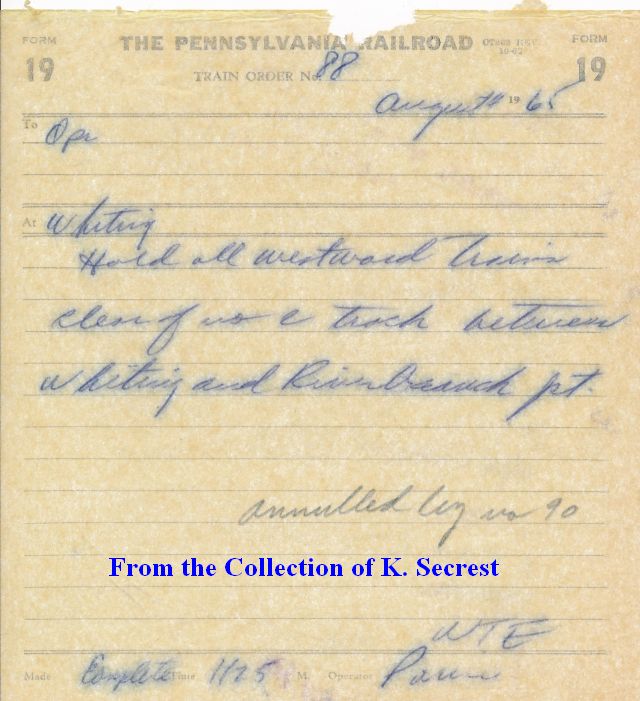 FORM 19
THE PENNSYLVANIA RAILROAD
FORM 19
TRAIN ORDER No. 88
August 11 1965
To Opr
At Whiting
Hold all westward trains
clear of no 2 track between
Whiting and River Branch jct.
annulled by no 90
From the Collection of K. Secrest
WTE
Made Complete Time 1125 M. Operator